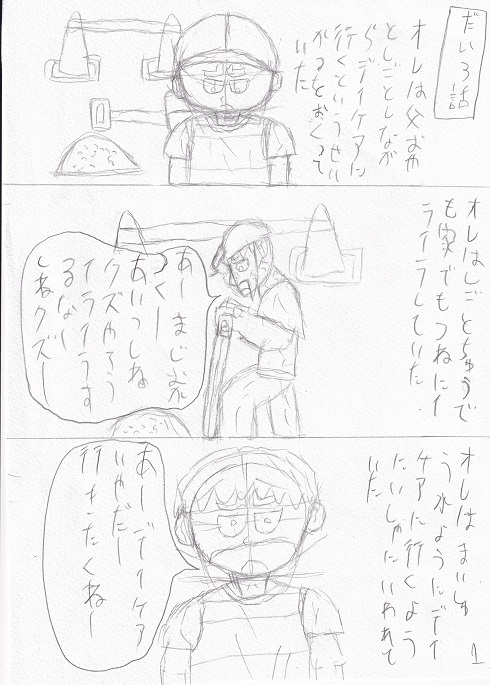 だい3話
オレは父おや
としごとしなが
らデイケアに
行くというせい
かつもおくって
いた
オレはしごとちゅうで
も家でもつねにイ
ライラしていた
あー まじムカ
つくー
あいつしね
クズやろう
イライラす
るなー
しねクズー
オレは まいしゅ
う水ようにデイ
ケアに行くよう
にいしゃにいわれて
いた
あーデイケア
いやだー
行きたくねー
1